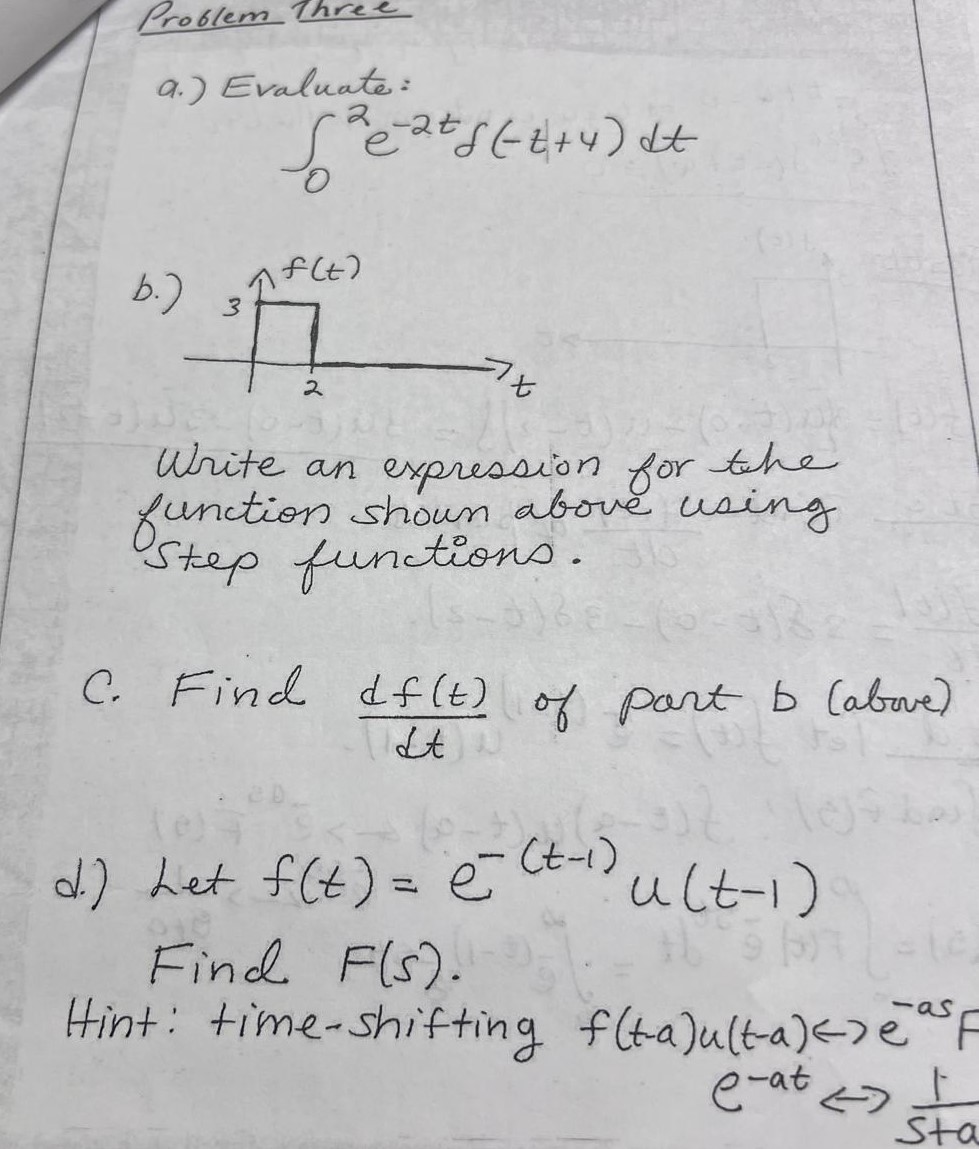 Problem Three
a.) Evaluate:
∫₀² e^{-2t} δ(-t+4) dt
b.)
f(t)
3
2
t
Write an expression for the
function shown above using
Step functions.
C. Find df(t)/dt of part b (above)
d.) Let f(t) = e^{-(t-1)} u(t-1)
Find F(s).
Hint: time-shifting f(t-a)u(t-a)<->e^{-as}F
e^{-at} <-> 1/(s+a